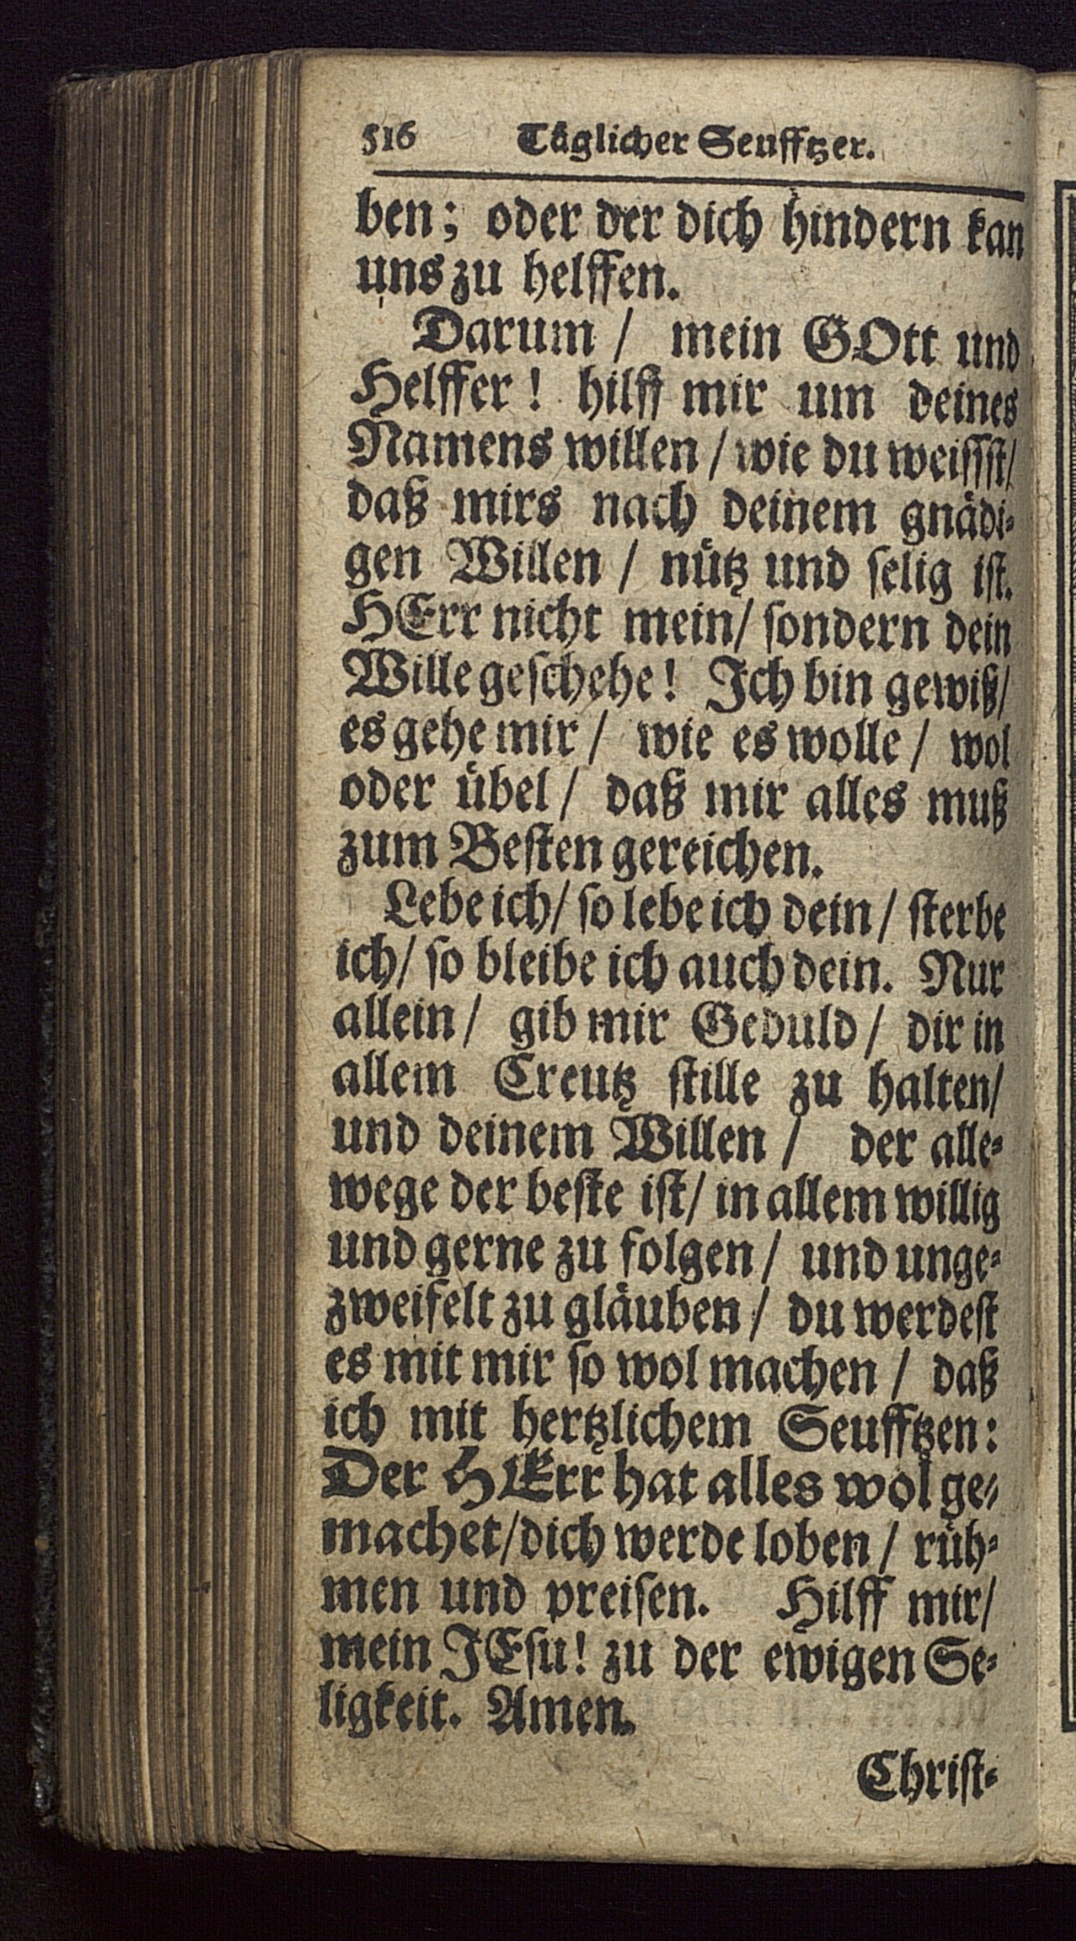 516 Täglicher Seufftzer.
ben; oder der dich hindern kan
uns zu helffen.
Darum / mein GOtt und
Helffer! hilff mir um deines
Namens willen / wie du weissst/
daß mirs nach deinem gnädi-
gen Willen / nütz und selig ist.
HErr nicht mein/ sondern dein
Wille geschehe! Ich bin gewiß/
es gehe mir / wie es wolle / wol
oder übel / daß mir alles muß
zum Besten gereichen.
Lebe ich/ so lebe ich dein / sterbe
ich/ so bleibe ich auch dein. Nur
allein / gib mir Geduld / dir in
allem Creutz stille zu halten/
und deinem Willen / der alle-
wege der beste ist/ in allem willig
und gerne zu folgen / und unge-
zweifelt zu gläuben / du werdest
es mit mir so wol machen / daß
ich mit hertzlichem Seufftzen:
Der HErr hat alles wol ge-
machet/dich werde loben / rüh-
men und preisen. Hilff mir/
mein JEsu! zu der ewigen Se-
ligkeit. Amen.
Christ-